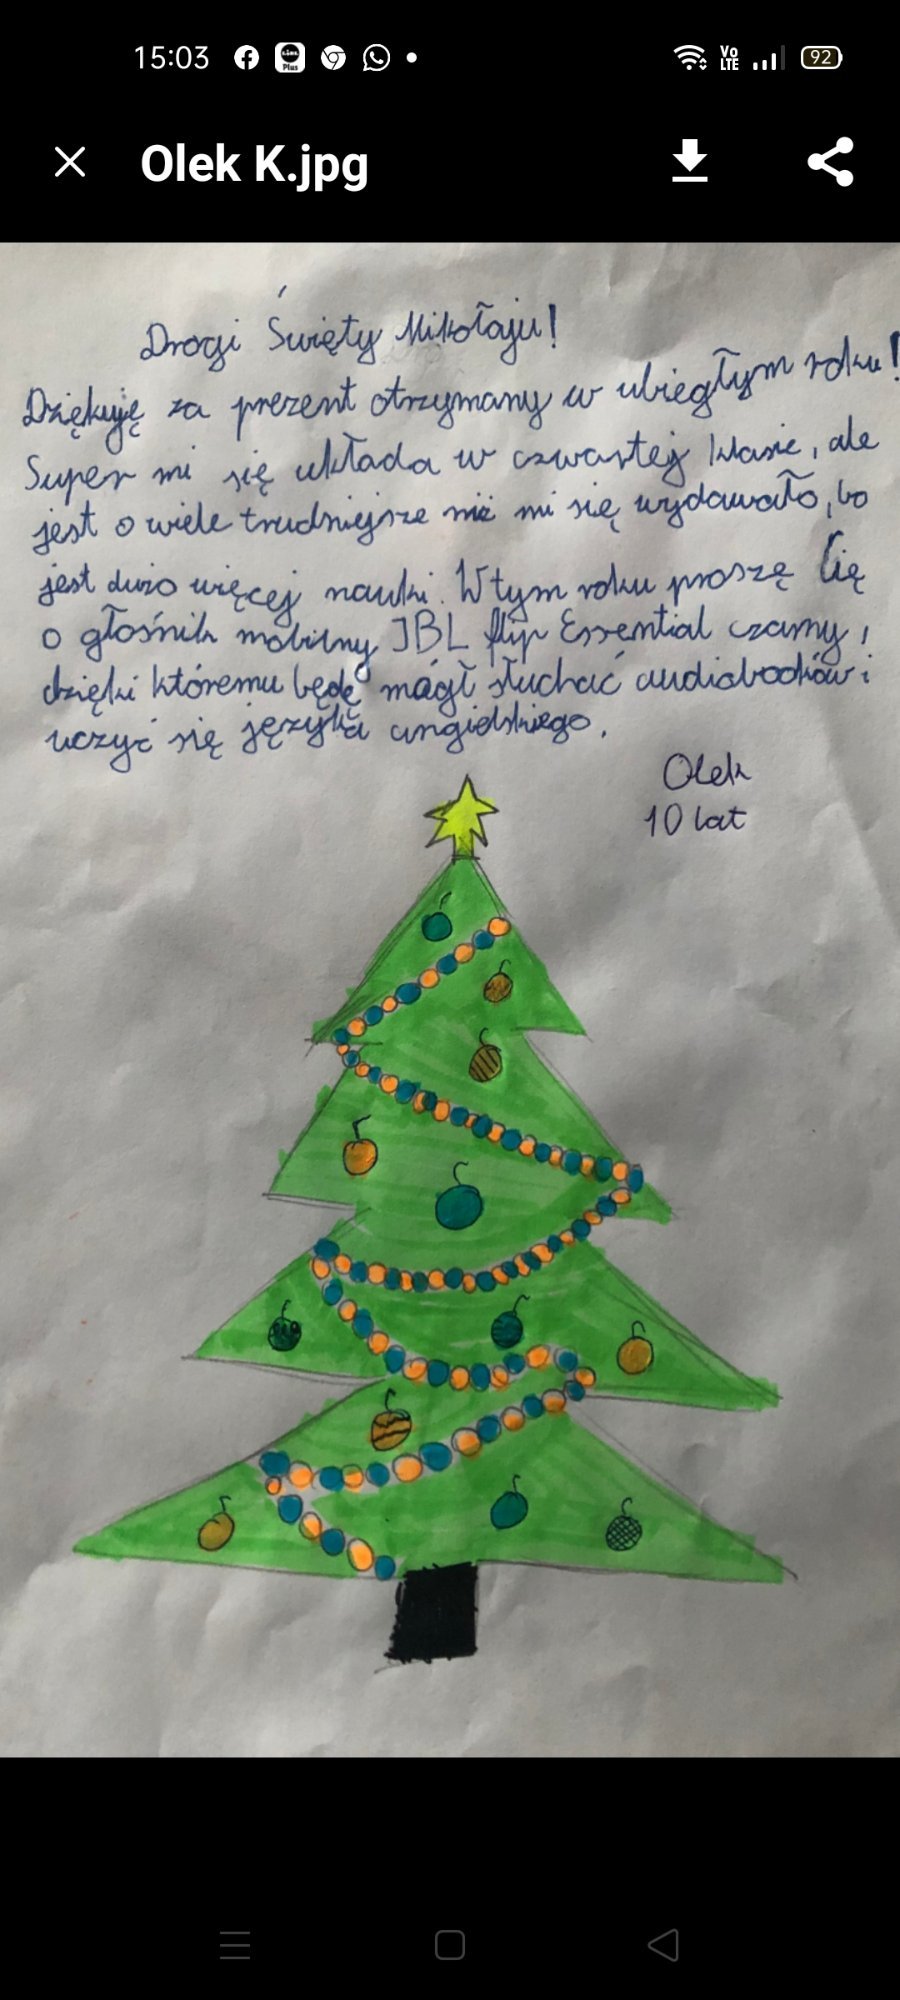 15:03
Vo
LTE
92
Olek K.jpg
Drogi Święty Mikołaju!
Dziękuję za prezent otrzymany w ubiegłym roku!
Super mi się układa w czwartej klasie, ale
jest o wiele trudniejsze niż mi się wydawało, bo
jest dużo więcej nauki. W tym roku proszę Cię
o głośnik mobilny JBL flip Essential czarny,
dzięki któremu będę mógł słuchać audiobooków i
uczyć się języka angielskiego.
Olek
10 lat